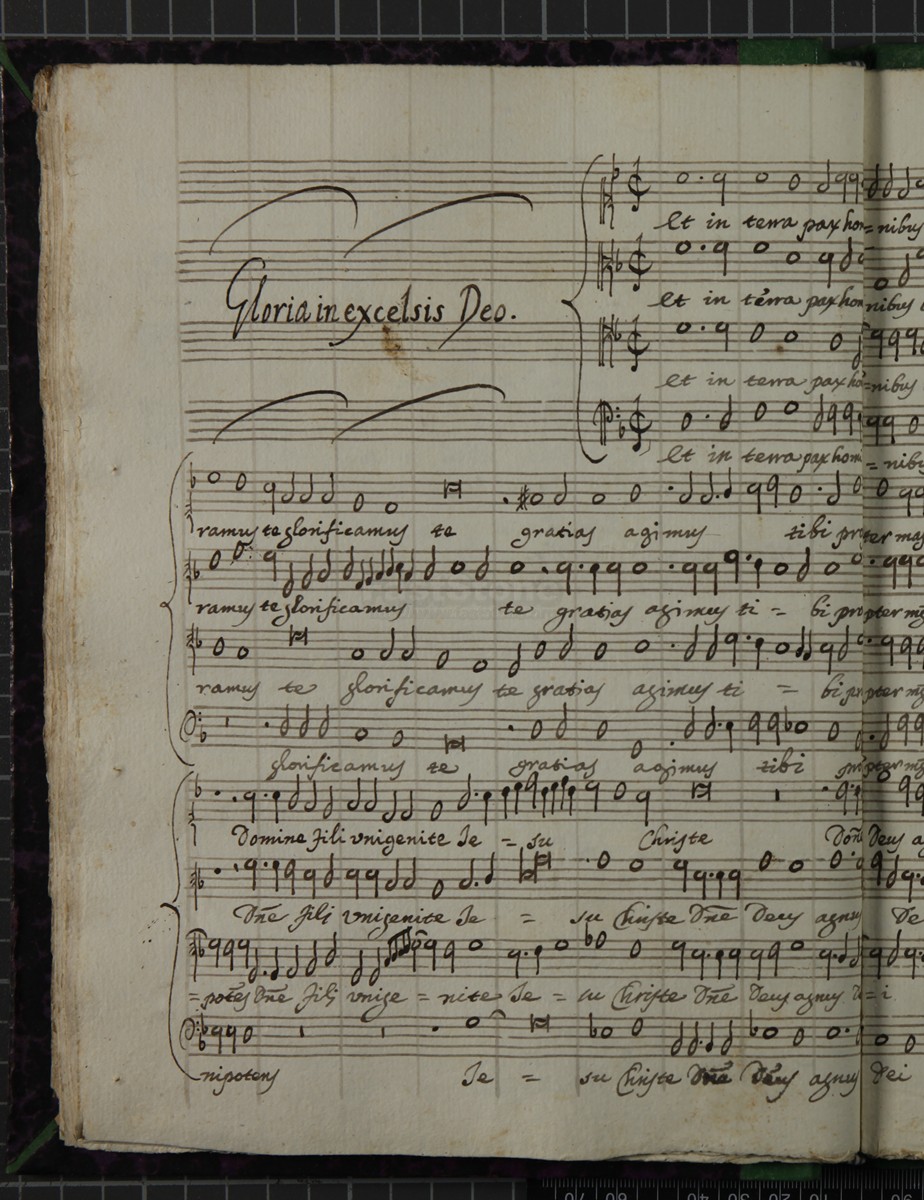 Gloria in excelsis Deo.
Et in terra pax hom= nibus
Et in terra pax hom nibus
Et in terra pax ho =nibus
Et in terra pax hom = nibus
ramus te glorificamus te gratias agimus tibi propter mag
ramus te glorificamus te gratias agimus ti = bi propter
ramus te glorificamus te gratias agimus ti = bi propter
glorificamus te gratias agimus tibi propter
Domine fili vnigenite Je = su Christe Deus
Dñe fili vnigenite Je = su Christe Dñe Deus agnus De
=potẽs Dñe fili vnige = nite Je = su Christe Dñe Deus agnus = i
nipotens Je = su Christe Dñe Deus agnus Dei
70 60 40 30 20 10